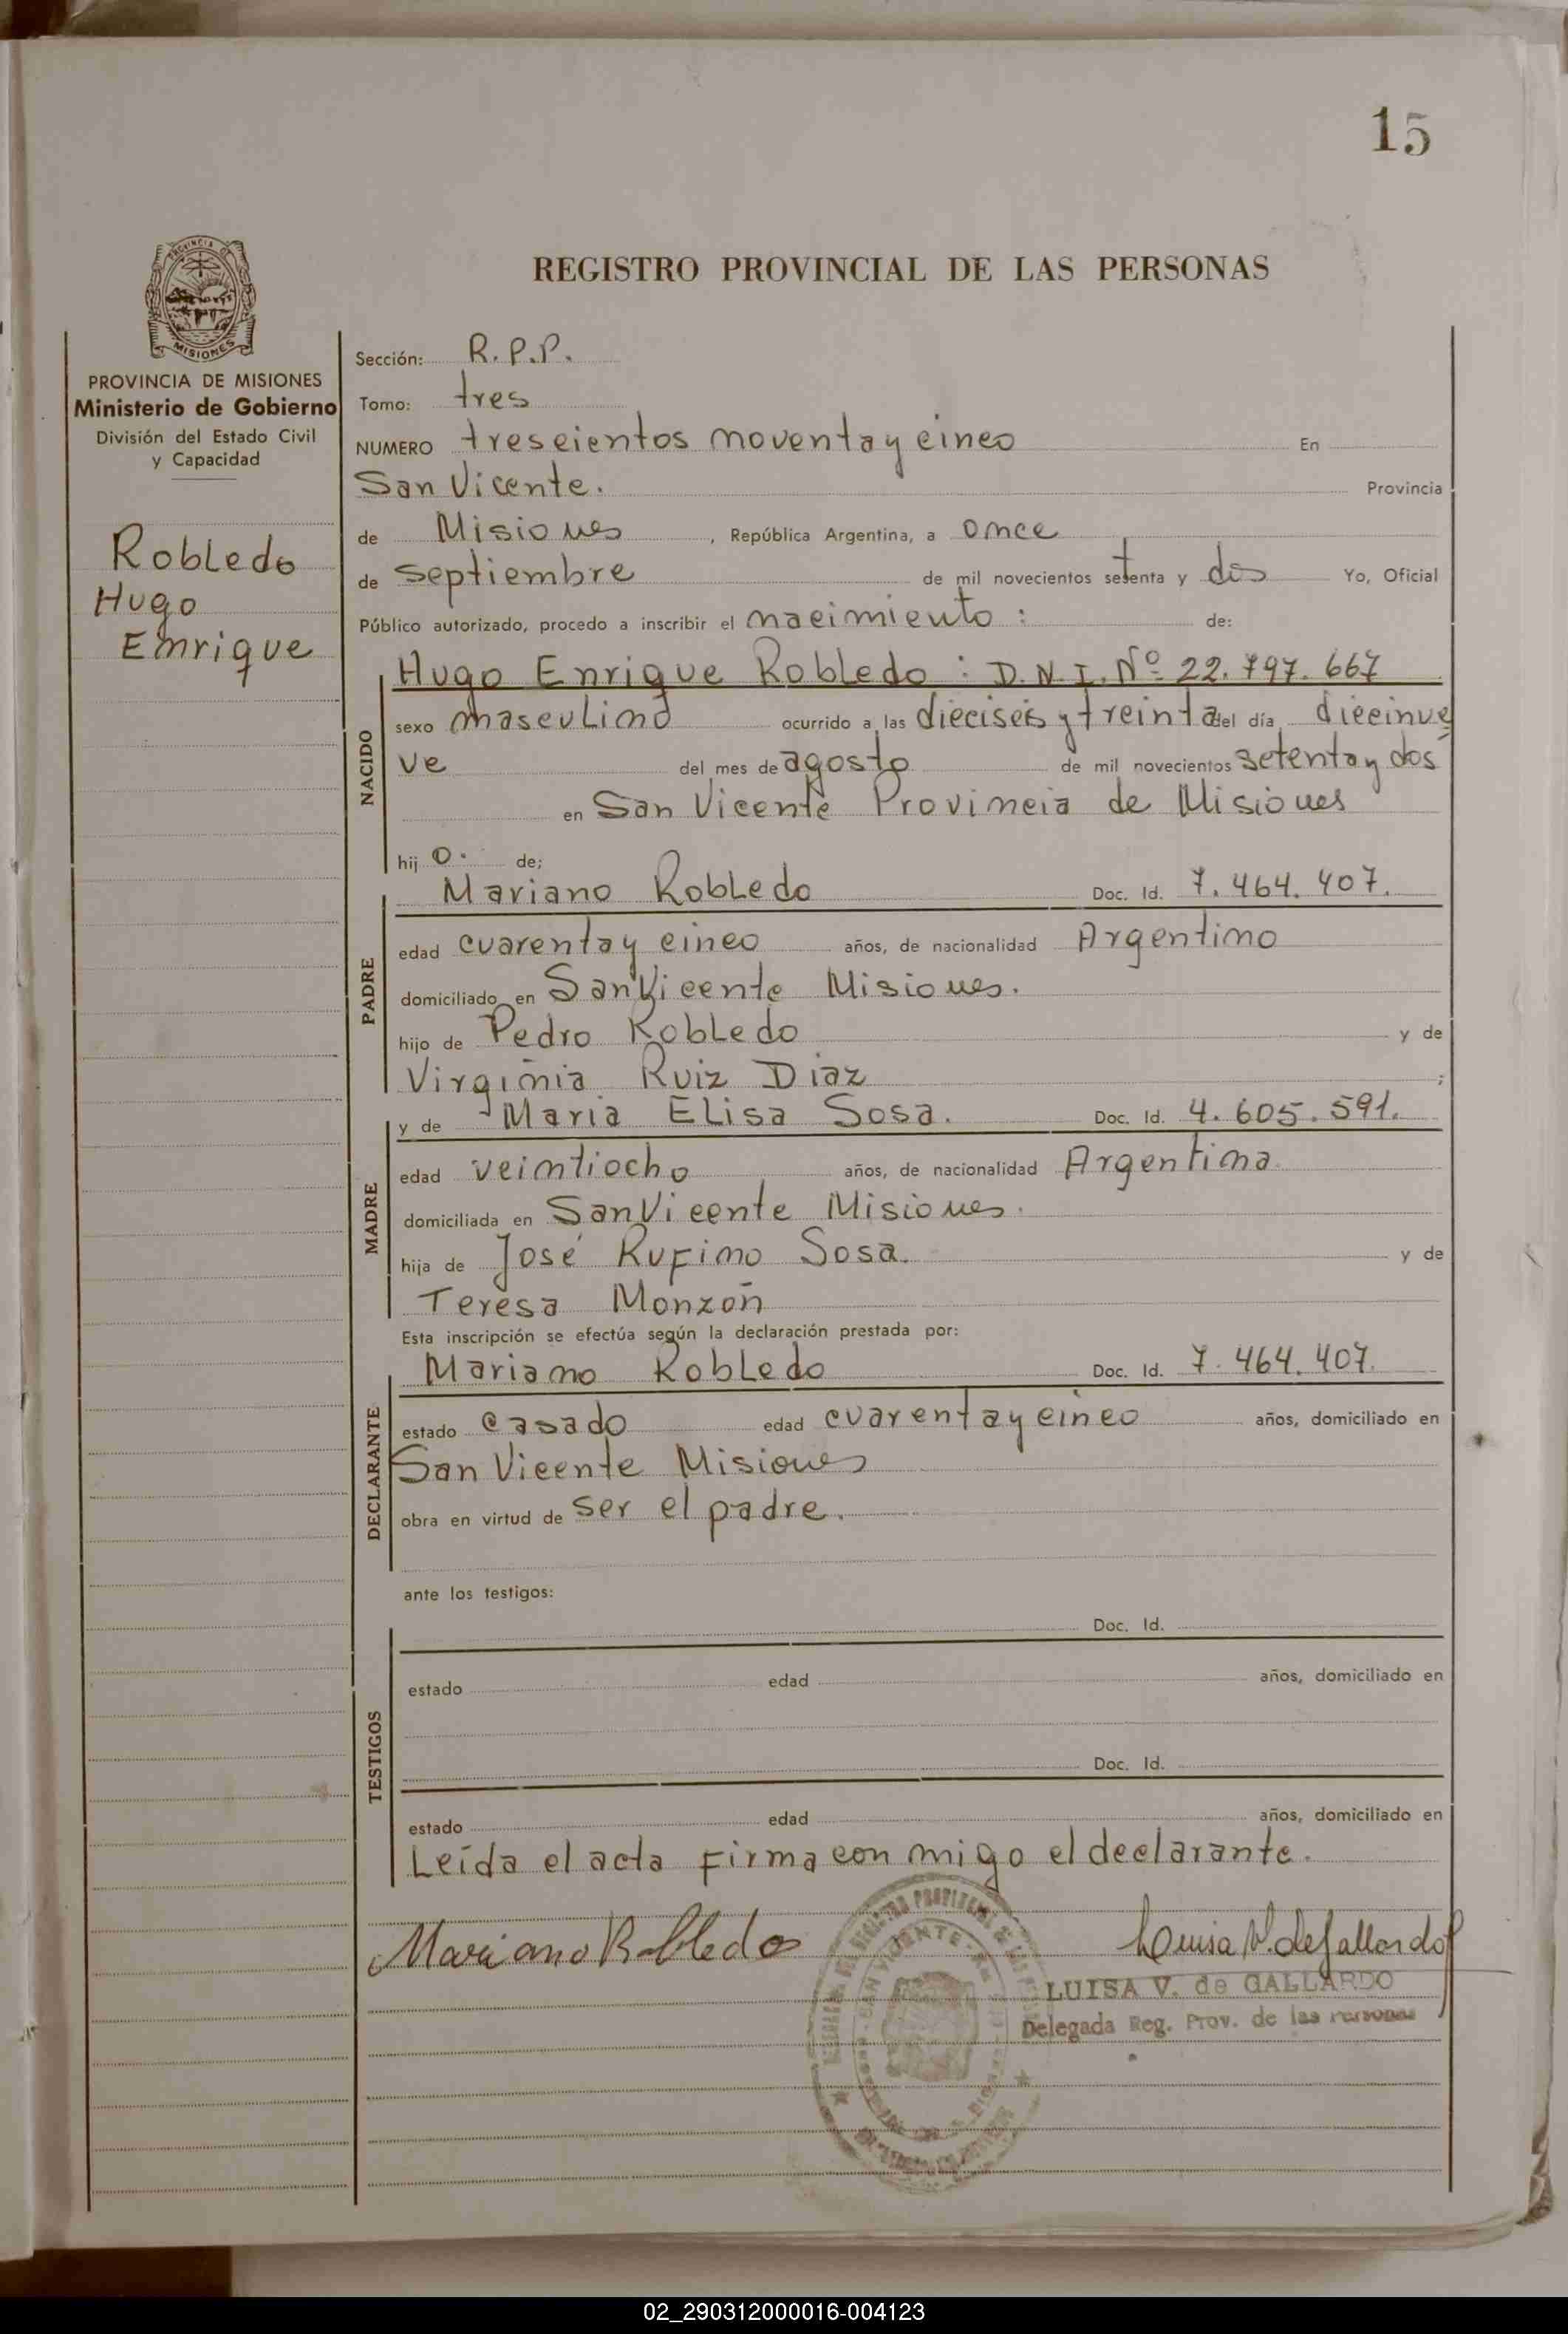 15
PROVINCIA DE
MISIONES
REGISTRO PROVINCIAL DE LAS PERSONAS
PROVINCIA DE MISIONES
Ministerio de Gobierno
División del Estado Civil
y Capacidad
Robledo
Hugo
Enrique
Sección: R.P.P.
Tomo: tres
NUMERO trescientos noventa y cinco En
San Vicente. Provincia
de Misiones, República Argentina, a once
de septiembre de mil novecientos setenta y dos Yo, Oficial
Público autorizado, procedo a inscribir el nacimiento : de:
NACIDO
Hugo Enrique Robledo : D.N.I. Nº 22.797.667
sexo masculino ocurrido a las dieciseis y treinta del día diecinue
ve del mes de agosto de mil novecientos setenta y dos
en San Vicente Provincia de Misiones
hij o. de;
PADRE
Mariano Robledo Doc. Id. 7.464.407.
edad cuarenta y cinco años, de nacionalidad Argentino
domiciliado en San Vicente Misiones.
hijo de Pedro Robledo y de
Virginia Ruiz Diaz ;
MADRE
y de Maria Elisa Sosa. Doc. Id. 4.605.591.
edad veintiocho años, de nacionalidad Argentina.
domiciliada en San Vicente Misiones.
hija de José Rufino Sosa. y de
Teresa Monzón
Esta inscripción se efectúa según la declaración prestada por:
DECLARANTE
Mariano Robledo Doc. Id. 7.464.407.
estado casado edad cuarenta y cinco años, domiciliado en
San Vicente Misiones
obra en virtud de ser el padre.
ante los testigos:
TESTIGOS
Doc. Id.
estado edad años, domiciliado en
Doc. Id.
estado edad años, domiciliado en
Leída el acta firma con migo el declarante.
Mariano Robledo
Luisa V. de Gallardo
LUISA V. de GALLARDO
Delegada Reg. Prov. de las Personas
02_290312000016-004123